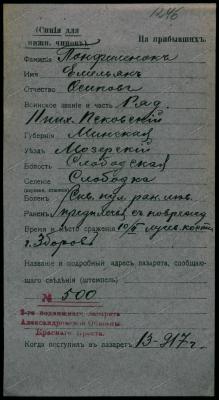 1246
(Синія для нижн. чиновъ)
На прибывшихъ.
Фамилія
Имя Емельянъ
Отчество Осиповъ
Воинское званіе и часть Ряд.
Псковскій
Губернія Минская
Уѣздъ Мозерскій
Волость Слободская
Селеніе Слободка
Боленъ
Раненъ предплечья съ поврежд
Время и мѣсто сраженія
г. Зборовъ
Названіе и подробный адресъ лазарета, сообщаю-
щаго свѣдѣнія (штемпель)
№ 500
2-го подвижного лазарета
Александровской Общины
Краснаго Креста.
Когда поступилъ въ лазаретъ 13-917 г.